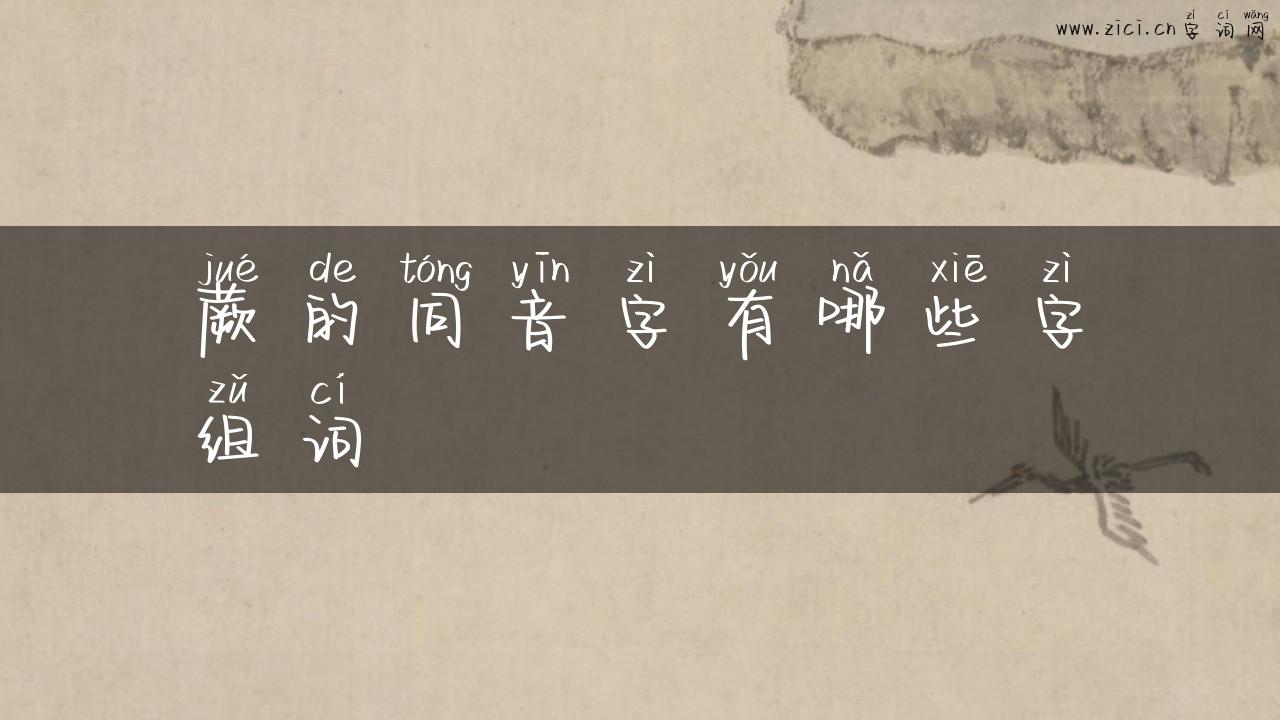 zì cí wǎng
www.zici.cn字词网
jué de tóng yīn zì yǒu nǎ xiē zì
蕨的同音字有哪些字
zǔ cí
组词